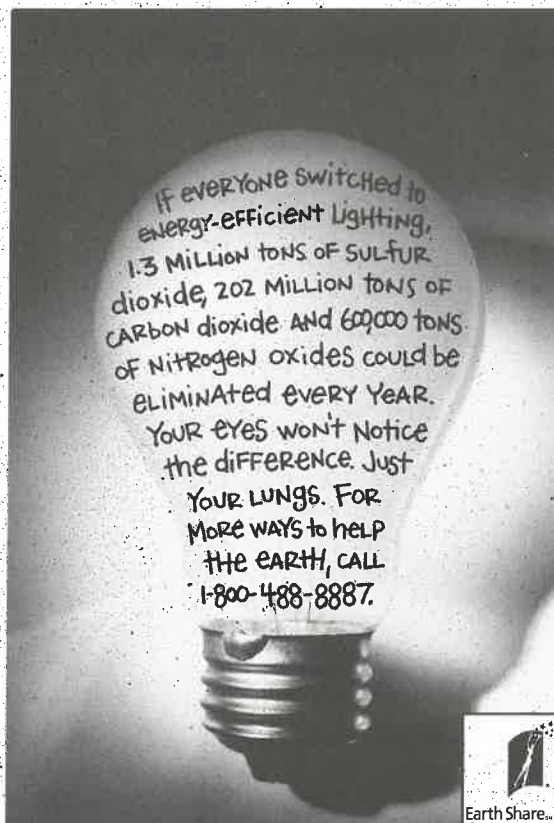 If everyone switched to
energy-efficient lighting,
1.3 million tons of sulfur
dioxide, 202 million tons of
carbon dioxide and 600,000 tons
of nitrogen oxides could be
eliminated every year.
Your eyes won't notice
the difference. Just
your lungs. For
more ways to help
the earth, call
1-800-488-8887.
Earth Share℠